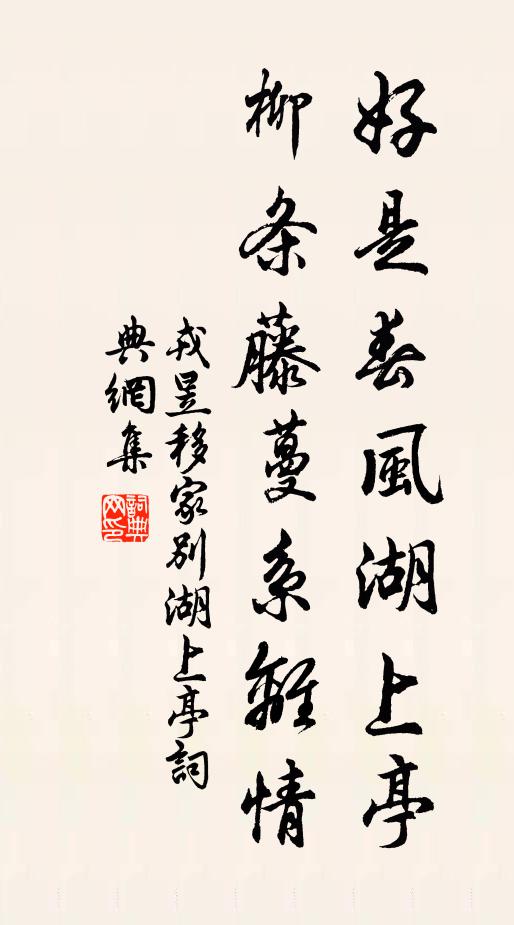 好是春風湖上亭
柳条藤蔓系離情
戎昱移家別湖上亭詞
典網集
詞典
网印